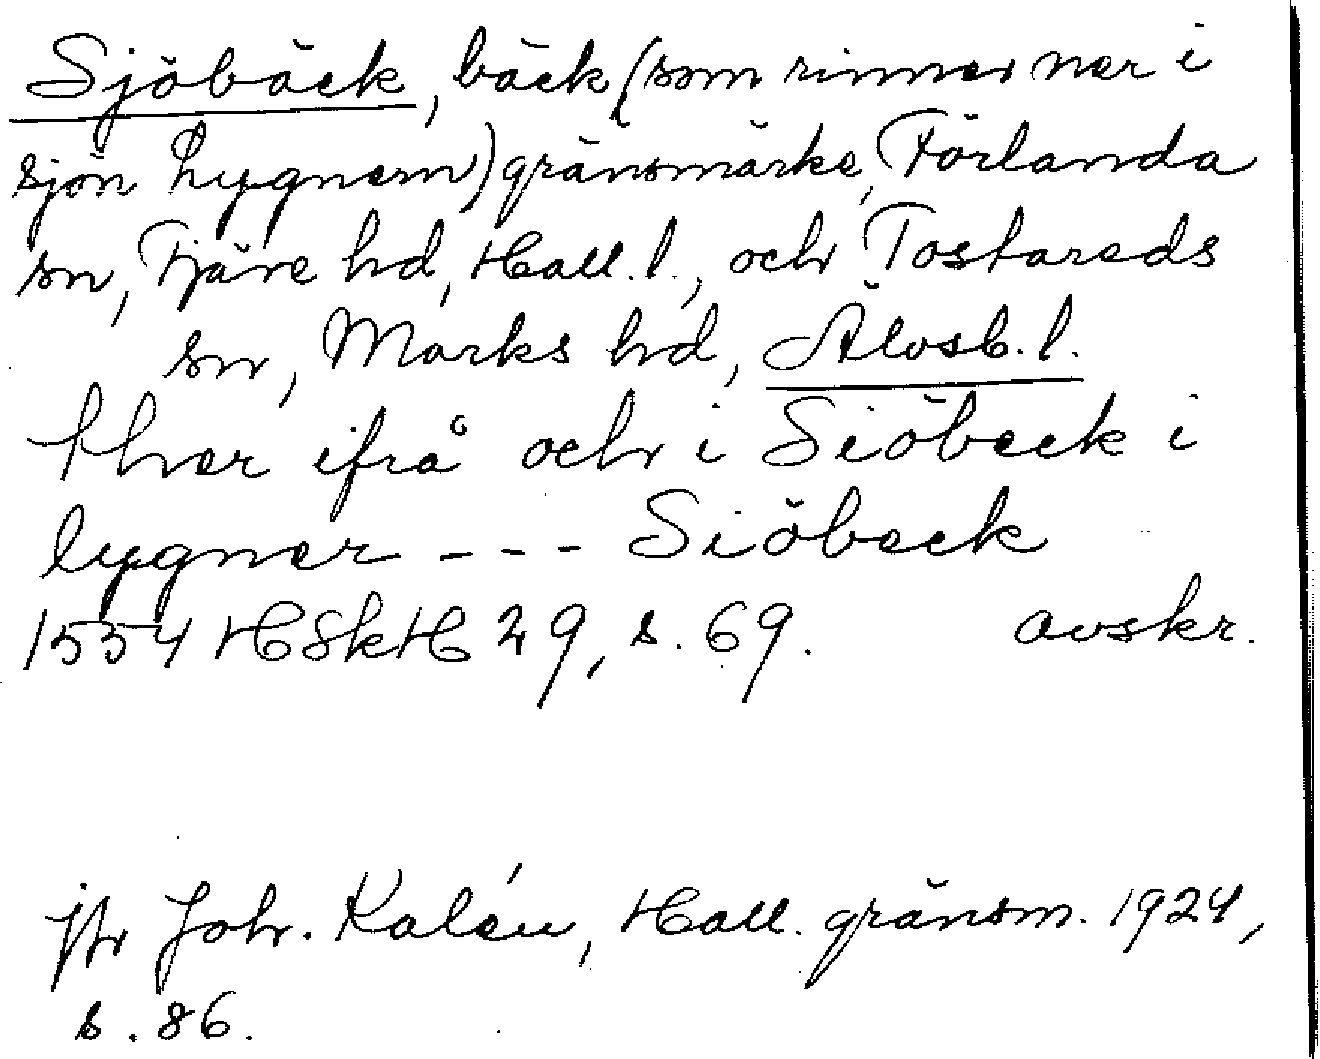 Sjöbäck, bäck (som rinner ner i
sjön Lygnern) gränsmärke, Förlanda
sn, Fjäre hd, Hall. l., och Tostareds
sn, Marks hd, Älvsb. l.
ther ifrå och i Siöbeck i
lygner --- Siöbeck
1554 HSkH 29, s. 69. avskr.
jfr Joh. Kalén, Hall. gränsm. 1924,
s. 86.